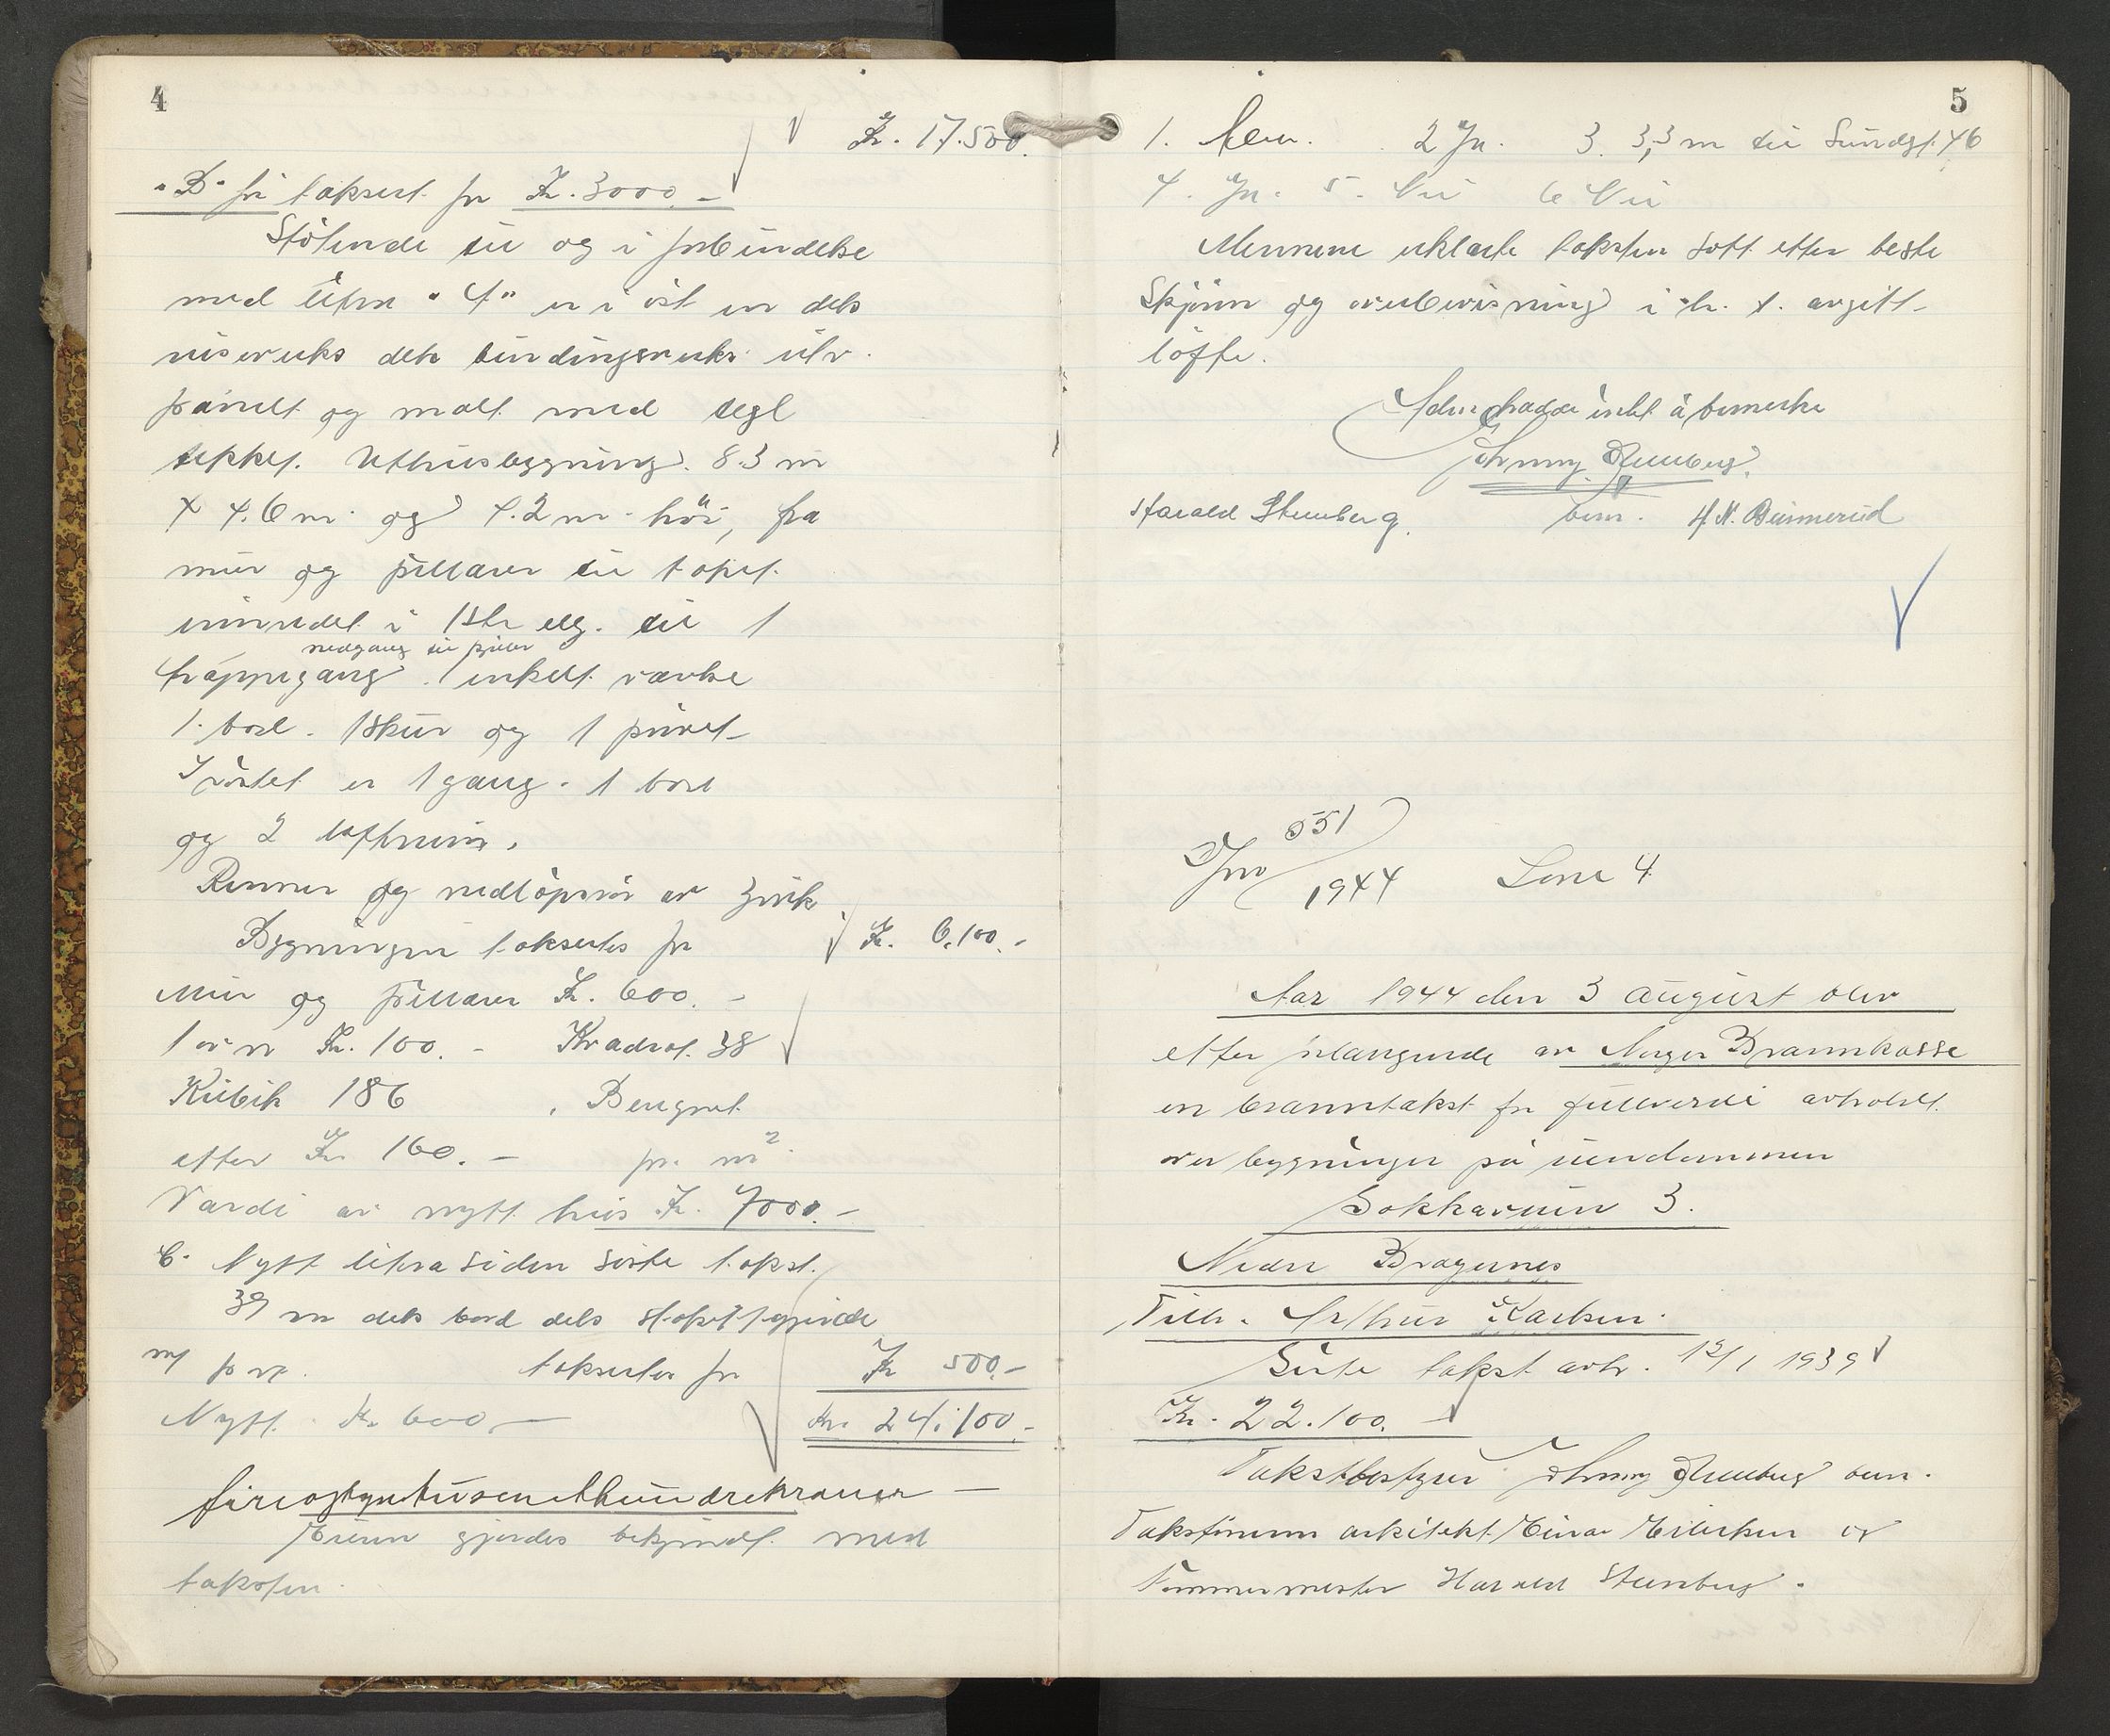 4
Kr. 17.500.
"B" før taksert for Kr. 3000.-
Stötende til og i forbindelse
med litra "A" er i öst en dels
reisverks dels bindingsverks utv.
panelt og malt med tegl
tekket. Uthusbygning. 8.3 m
x 4.6 m. og 4.2 m. höi, fra
mur og pillarer til toppet.
innredet i 1ste etg. til 1
nedgang til kjeller
trappegang. 1 enkelt værelse
1. bod. 1 skur og 1 privet-
I röstet er 1 gang. 1 bod
og 2 loftsrum.
Renner og nedlöpsrör av zink
Bygningen takseres for Kr. 6.100.-
Mur og pillarer Kr. 600.-
1 ovn Kr. 100.- Kvadrat. 38
Kubik 186 . Beregnet
etter Kr. 160.- pr. m²
Verdi av nytt hus Kr. 7000.-
C. Nytt litra siden siste takst.
39 m dels bord dels stakittgjerde
m/ port. takseres for Kr 500.-
Nytt. Kr 600,- Kr. 24.100.-
fireogtyvetusenethundrekroner -
Eieren gjordes bekjendt med
taksten.
5
1. Nei. 2 Ja. 3. 3,3 m til Sundgt. 46
4. Ja. 5. Nei 6 Nei
Mennene erklærte taksten satt etter beste
Skjönn og overbevisning i h. t. avgitt
löfte.
hadde intet å bemerke
Harald Stenberg. best. H. N. Buinerud
J/no 551/1944 Sone 4
Aar 1944 den 3 august blev
etter forlangende av Norges Brannkasse
en branntakst for fullverdi avholdt
over bygninger på eiendommen
3.
Nedre Bragernes
Tilh. Arthur Karlsen.
Siste takst avh. 12/1 1939
Kr. 22.100.-
Takstbestyrer best.
Takstmenn arkitekt Einar Eilertsen og
Tömmermester Harald Stenberg.